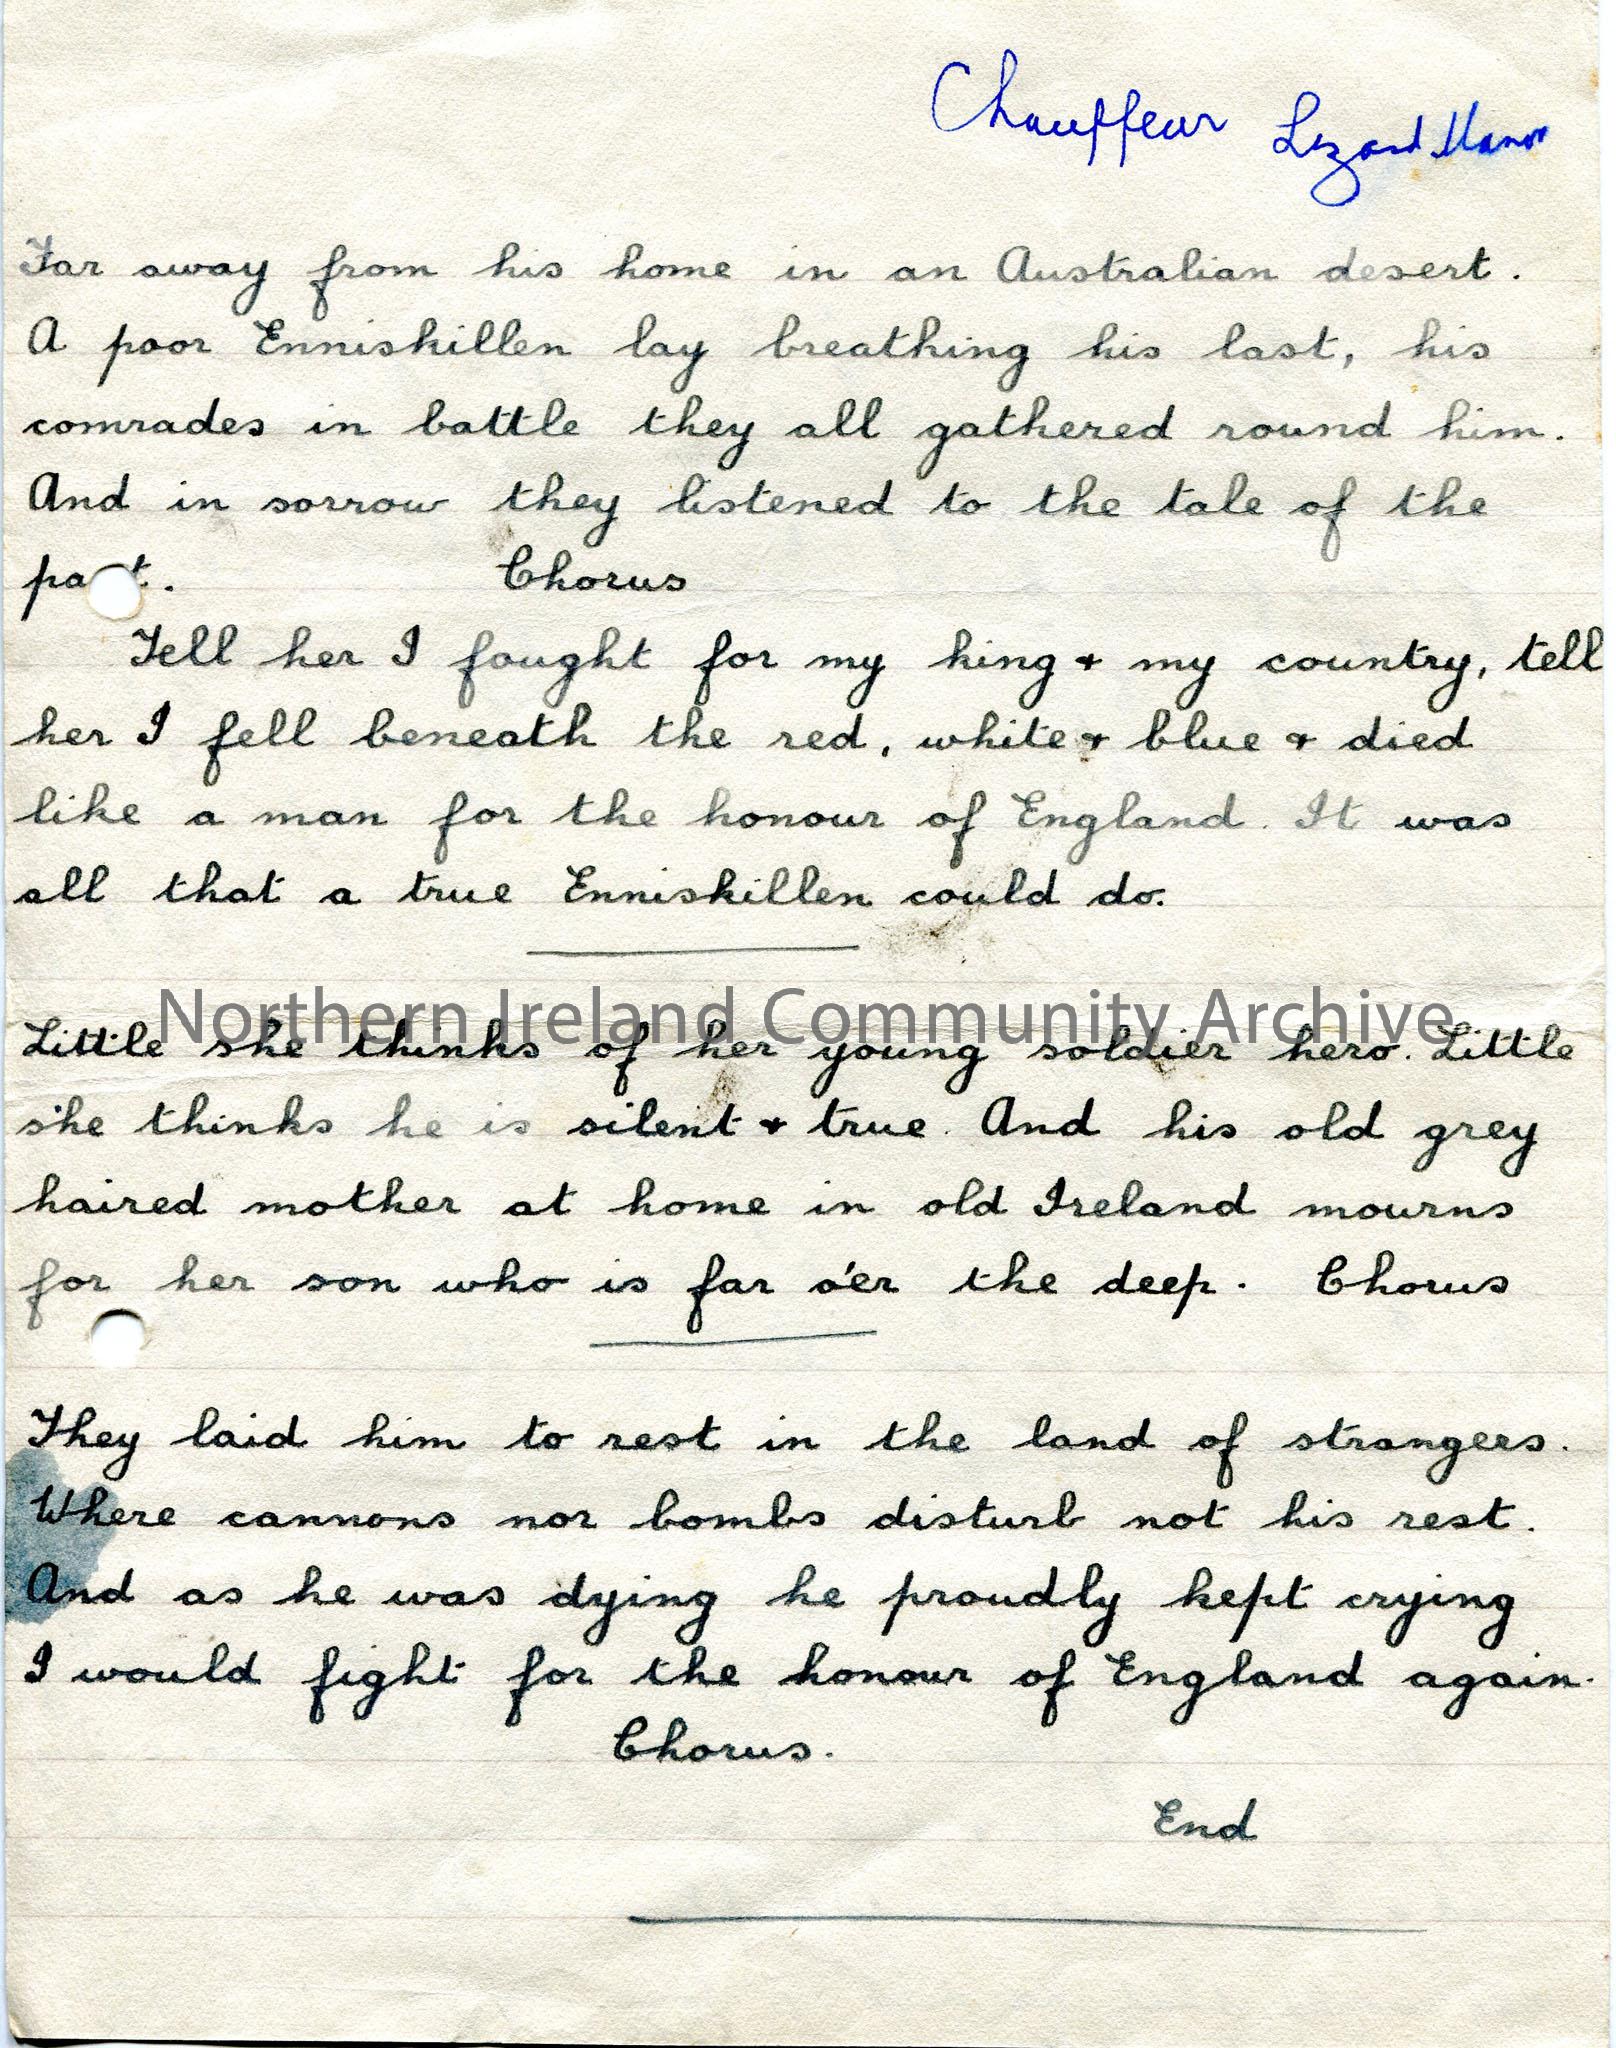 Chauffeur Lizard Manor
Far away from his home in an Australian desert.
A poor Enniskillen lay breathing his last, his
comrades in battle they all gathered round him.
And in sorrow they listened to the tale of the
pa t. Chorus
Tell her I fought for my king & my country, tell
her I fell beneath the red, white & blue & died
like a man for the honour of England. It was
all that a true Enniskillen could do.
Northern Ireland Community Archive
Little she thinks of her young soldier hero. Little
she thinks he is silent & true. And his old grey
haired mother at home in old Ireland mourns
for her son who is far o'er the deep. Chorus
They laid him to rest in the land of strangers.
Where cannons nor bombs disturb not his rest.
And as he was dying he proudly kept crying
I would fight for the honour of England again.
Chorus.
End